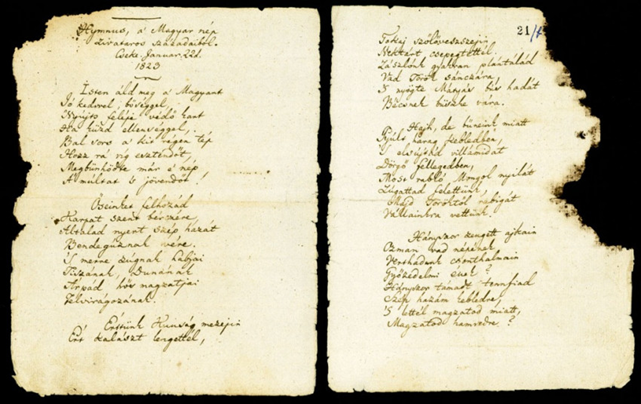 Hymnus, a' Magyar nép
zivataros századaiból.
Cseke, Januar. 22d.
1823
Isten áldd meg a' Magyart
Jó kedvvel, bőséggel,
Nyújts feléje védő kart
Ha küzd ellenséggel;
Bal sors a' kit régen tép
Hozz rá víg esztendőt,
Megbünhödte már e' nép
A' múltat 's jövendőt!
Őseinket felhozád
Kárpát szent bérczére,
Általad nyert szép hazát
Bendegúznak vére.
'S merre zúgnak habjai
Tiszának, Dunának
Árpád hős magzatjai
Felvirágozának.
Értünk Kunság mezején
Ért kalászt lengettél,
21
Tokaj szőlővesszein
Nektárt csepegtettél.
Zászlónk gyakran plántálád
Vad Török sánczára,
'S nyögte Mátyás bús hadát
Bécsnek büszke vára.
Hajh, de bűneink miatt
Gyúlt harag kebledben,
'S elsújtád villámidat
Dörgő fellegedben,
Most rabló Mongol nyilát
Zúgattad felettünk,
Majd Töröktől rabigát
Vállainkra vettünk.
Hányszor zengett ajkain
Ozman vad népének
Vert hadunk csonthalmain
Győzedelmi ének?
Hányszor támadt tenfiad
Szép hazám kebledre,
'S lettél magzatod miatt
Magzatod hamvedre?